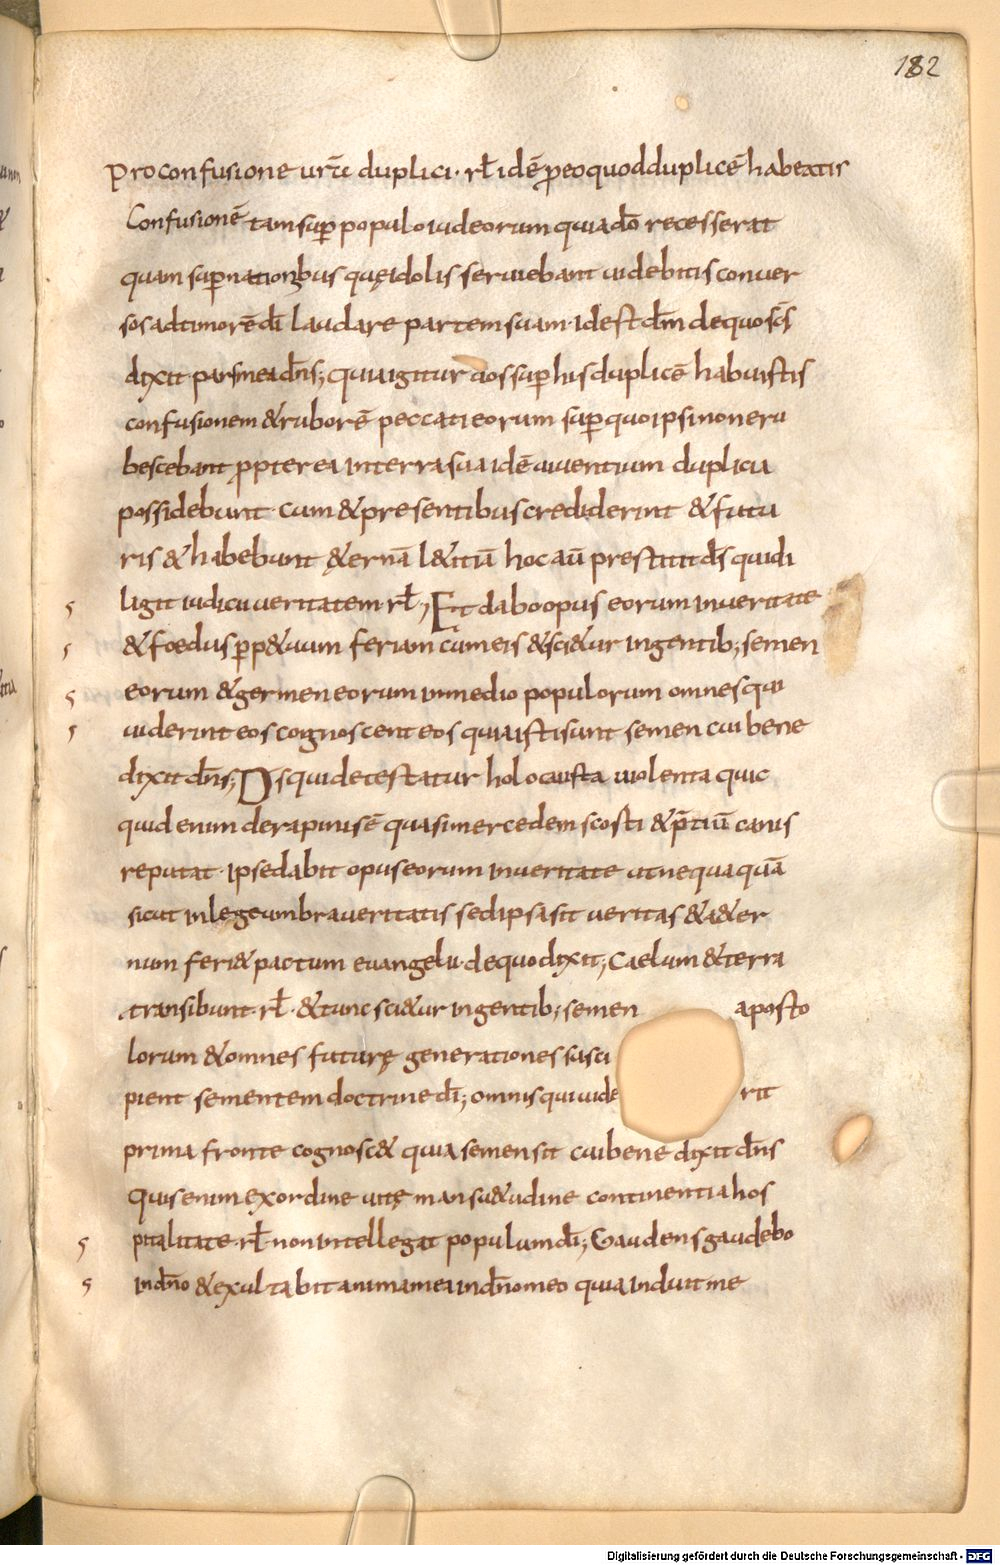 182
Pro confusione urā duplici · rł idē ꝑeo quod duplicē habeatis
Confusionē tam suꝑ populo iudeorum qui a dō recesserat
quam suꝑ nationibus quę idolis seruiebant uidebitis conuer
sos ad timorē dī laudare partem suam · id est dm̄ de quo scs̄
dixit pars mea dn̄s; quia igitur uos suꝑ his duplicē habuistis
confusionem & ruborē peccati eorum suꝑ quo ipsi non eru
bescebant ꝓpterea in terra sua idē uiuentium duplicia
possidebunt · cum & presentibus crediderint & futu
ris & habebunt &ernā l&itiā hoc aū prestitit ds̄ qui di
ligit iudicii ueritatem rł; Et dabo opus eorum in ueritate
& foedus ꝑp&uum feriam cum eis & sci&ur in gentib; semen
eorum & germen eorum in medio populorum omnes qui
uiderint eos cognoscent eos quia isti sunt semen cui bene
dixit dn̄s; Ds qui detestatur holocausta uiolenta quic
quid enim de rapinis ē quasi mercedem scosti & p̄tiū canis
reputat · ipse dabit opus eorum in ueritate ut nequaquā
sicut in lege umbra ueritatis sed ipsa sit ueritas & ad&er
num feri& pactum euangelii · de quo dixit; Caelum & terra
transibunt · rł · & tunc sci&ur in gentib; semen aposto
lorum & omnes futurę generationes susci
pient sementem doctrine dī; omnis qui uide rit
prima fronte cognosc& quia semen sit cui bene dixit dn̄s
Quis enim ex ordine uitę mansu&udine continentia hos
pitalitate · rł · non intellegat populum dī; Gaudens gaudebo
in dn̄o & exultabit anima mea in dn̄o meo quia induit me
Digitalisierung gefördert durch die Deutsche Forschungsgemeinschaft - DFG